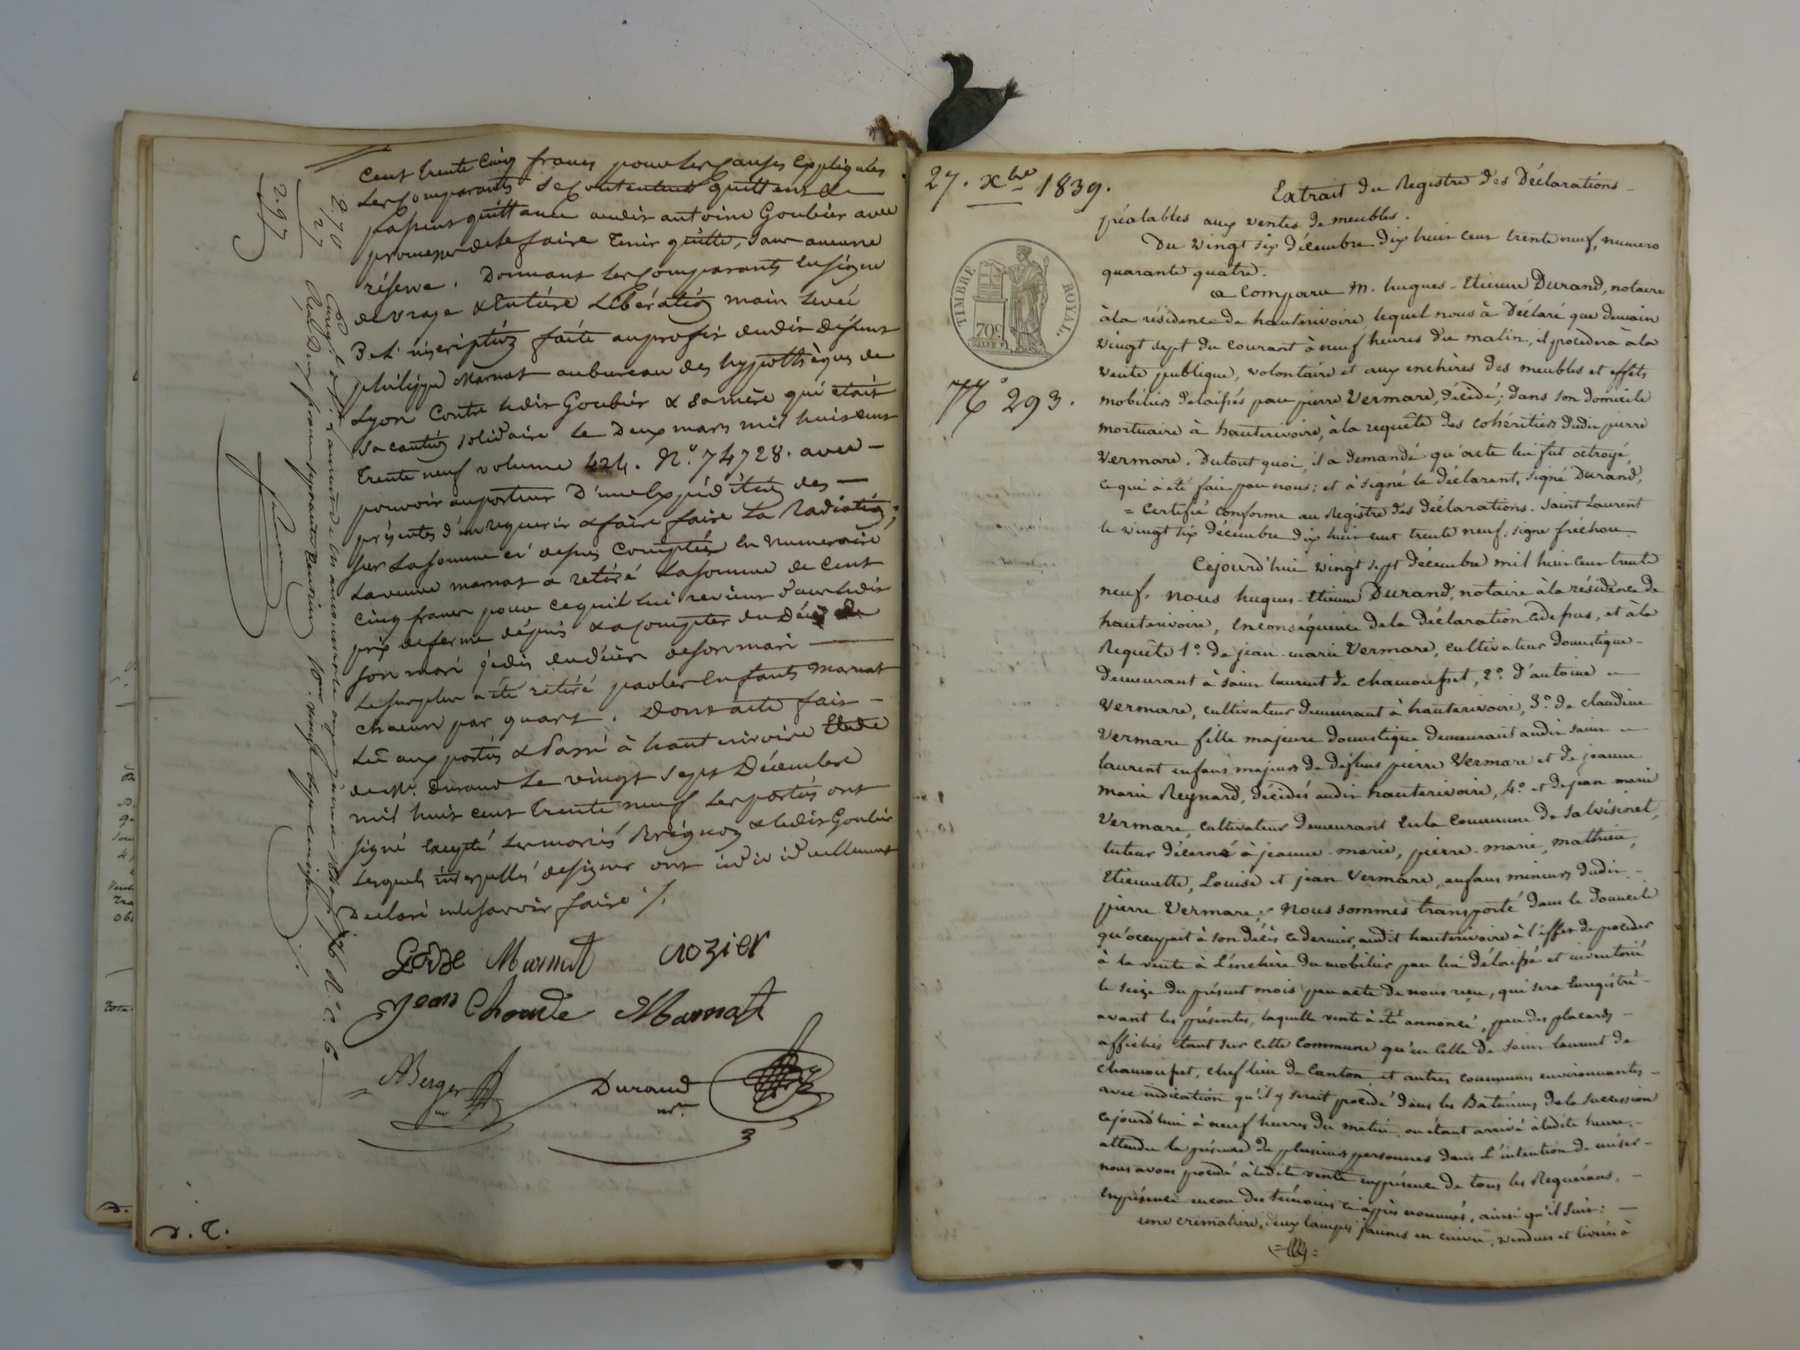 cent trente cinq francs pour les causes expliquées
les comparants se contentent quittent &
passent quittance audit antoine Goubier avec
promesse de le faire tenir quitte, sans aucune
réserve. Donnant les comparants en signe
de vraye & Entière Libération main levée
De l'inscription faite au profit dudit défunt
philippe Marnat au bureau des hypothèques de
Lyon Contre ledit Goubier & sa mère qui était
sa caution solidaire le Deux mars mil huit cent
trente neuf volume 424. N.o 74728. avec
pouvoir au porteur D'une Expédition des
présentes d'en requerir & faire faire la Radiation;
sur la somme ci depuis Comptée En Numeraire
La veuve marnat a retiré La somme de Cent
Cinq francs pour ce qui lui revient sur ledit
prix de ferme depuis & a compter du Décès de
son mari
Le surplus a été retiré par les Enfants Marnat
chacun par quart. Dont acte fait
Lu aux parties & Passé à hauterivoire Etude
de Me. Durand Le vingt sept Décembre
mil huit cent trente neuf Les parties ont
signé Excepté Les mariés & ledit Goubier
Lesquels interpellés de signer ont individuellement
Declaré ne le savoir faire ./.
Marnat crozier
jean Marnat
ABerger Durand
nre.
3
D. C.
2.70
27
2.97
27. xbre 1839.
TIMBRE ROYAL.
70c
N.o 293.
Extrait du Registre des Déclarations
préalables aux ventes de meubles.
Du vingt six décembre dix huit cent trente neuf, numero
quarante quatre.
a Comparu M. hugues-Etienne Durand, notaire
à la résidence de hauterivoire, lequel nous à Déclaré que demain
vingt sept du courant à neuf heures du matin, il procédera à la
vente publique, volontaire et aux enchères des meubles et effets
mobiliers délaissés par pierre Vermare, décédé; dans son domicile
mortuaire à hauterivoire, à la requête des cohéritiers dudit pierre
Vermare. Du tout quoi, il a demandé qu'acte lui fut octroyé,
ce qui à été fait par nous; et à signé le déclarant, signé Durand,
= Certifié conforme au Registre des Déclarations. Saint Laurent
le vingt six décembre dix huit cent trente neuf. signé fréchou
Cejourd'hui vingt sept décembre mil huit cent trente
neuf, Nous hugues-Etienne Durand, notaire à la résidence de
hauterivoire, En conséquence de la Déclaration ci dessus, et à la
Requête 1.o de jean-marie Vermare, cultivateur domestique
demeurant à saint laurent de chamousset, 2.o d'antoine
Vermare, cultivateur demeurant à hauterivoire, 3.o de claudine
Vermare fille majeure domestique demeurant audit saint
laurent enfans majeurs de Défunt pierre Vermare et de jeanne
marie Reynard, décédés audit hauterivoire, 4.o et de jean marie
Vermare, cultivateur demeurant En la Commune de
tuteur décerné à jeanne-marie, pierre-marie, mathieu,
Etiennette, Louise et jean Vermare, enfans mineurs dudit
pierre Vermare; Nous sommes transporté dans le Domicile
qu'occupait à son décès ce dernier, audit hauterivoire à l'effet de procéder
à la vente à L'enchère du mobilier par lui délaissé et inventorié
le seize du présent mois par acte de nous reçu, qui sera Enregistré
avant les présentes, laquelle vente à été annoncé, par des placards
affichés tant sur cette Commune qu'en Celle de saint laurent de
chamousset, chef lieu de Canton et autres communes environnantes
avec indication qu'il y serait procédé dans les Batimens de la succession
cejourd'hui à neuf heures du matin, ou étant arrivé à ladite heure,
attendu la présence de plusieurs personnes dans L'intention de miser
nous avons procédé à ladite vente en présence de tous les Requérans,
En présence encore des témoins ci après nommés, ainsi qu'il suit:
une crémalière, deux lampes jaunes en cuivre, vendues et livrées à